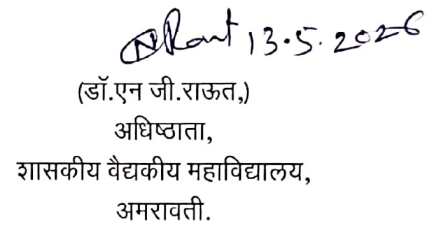 NRaut 13.5.2026
(डॉ.एन जी.राऊत,)
अधिष्ठाता,
शासकीय वैद्यकीय महाविद्यालय,
अमरावती.